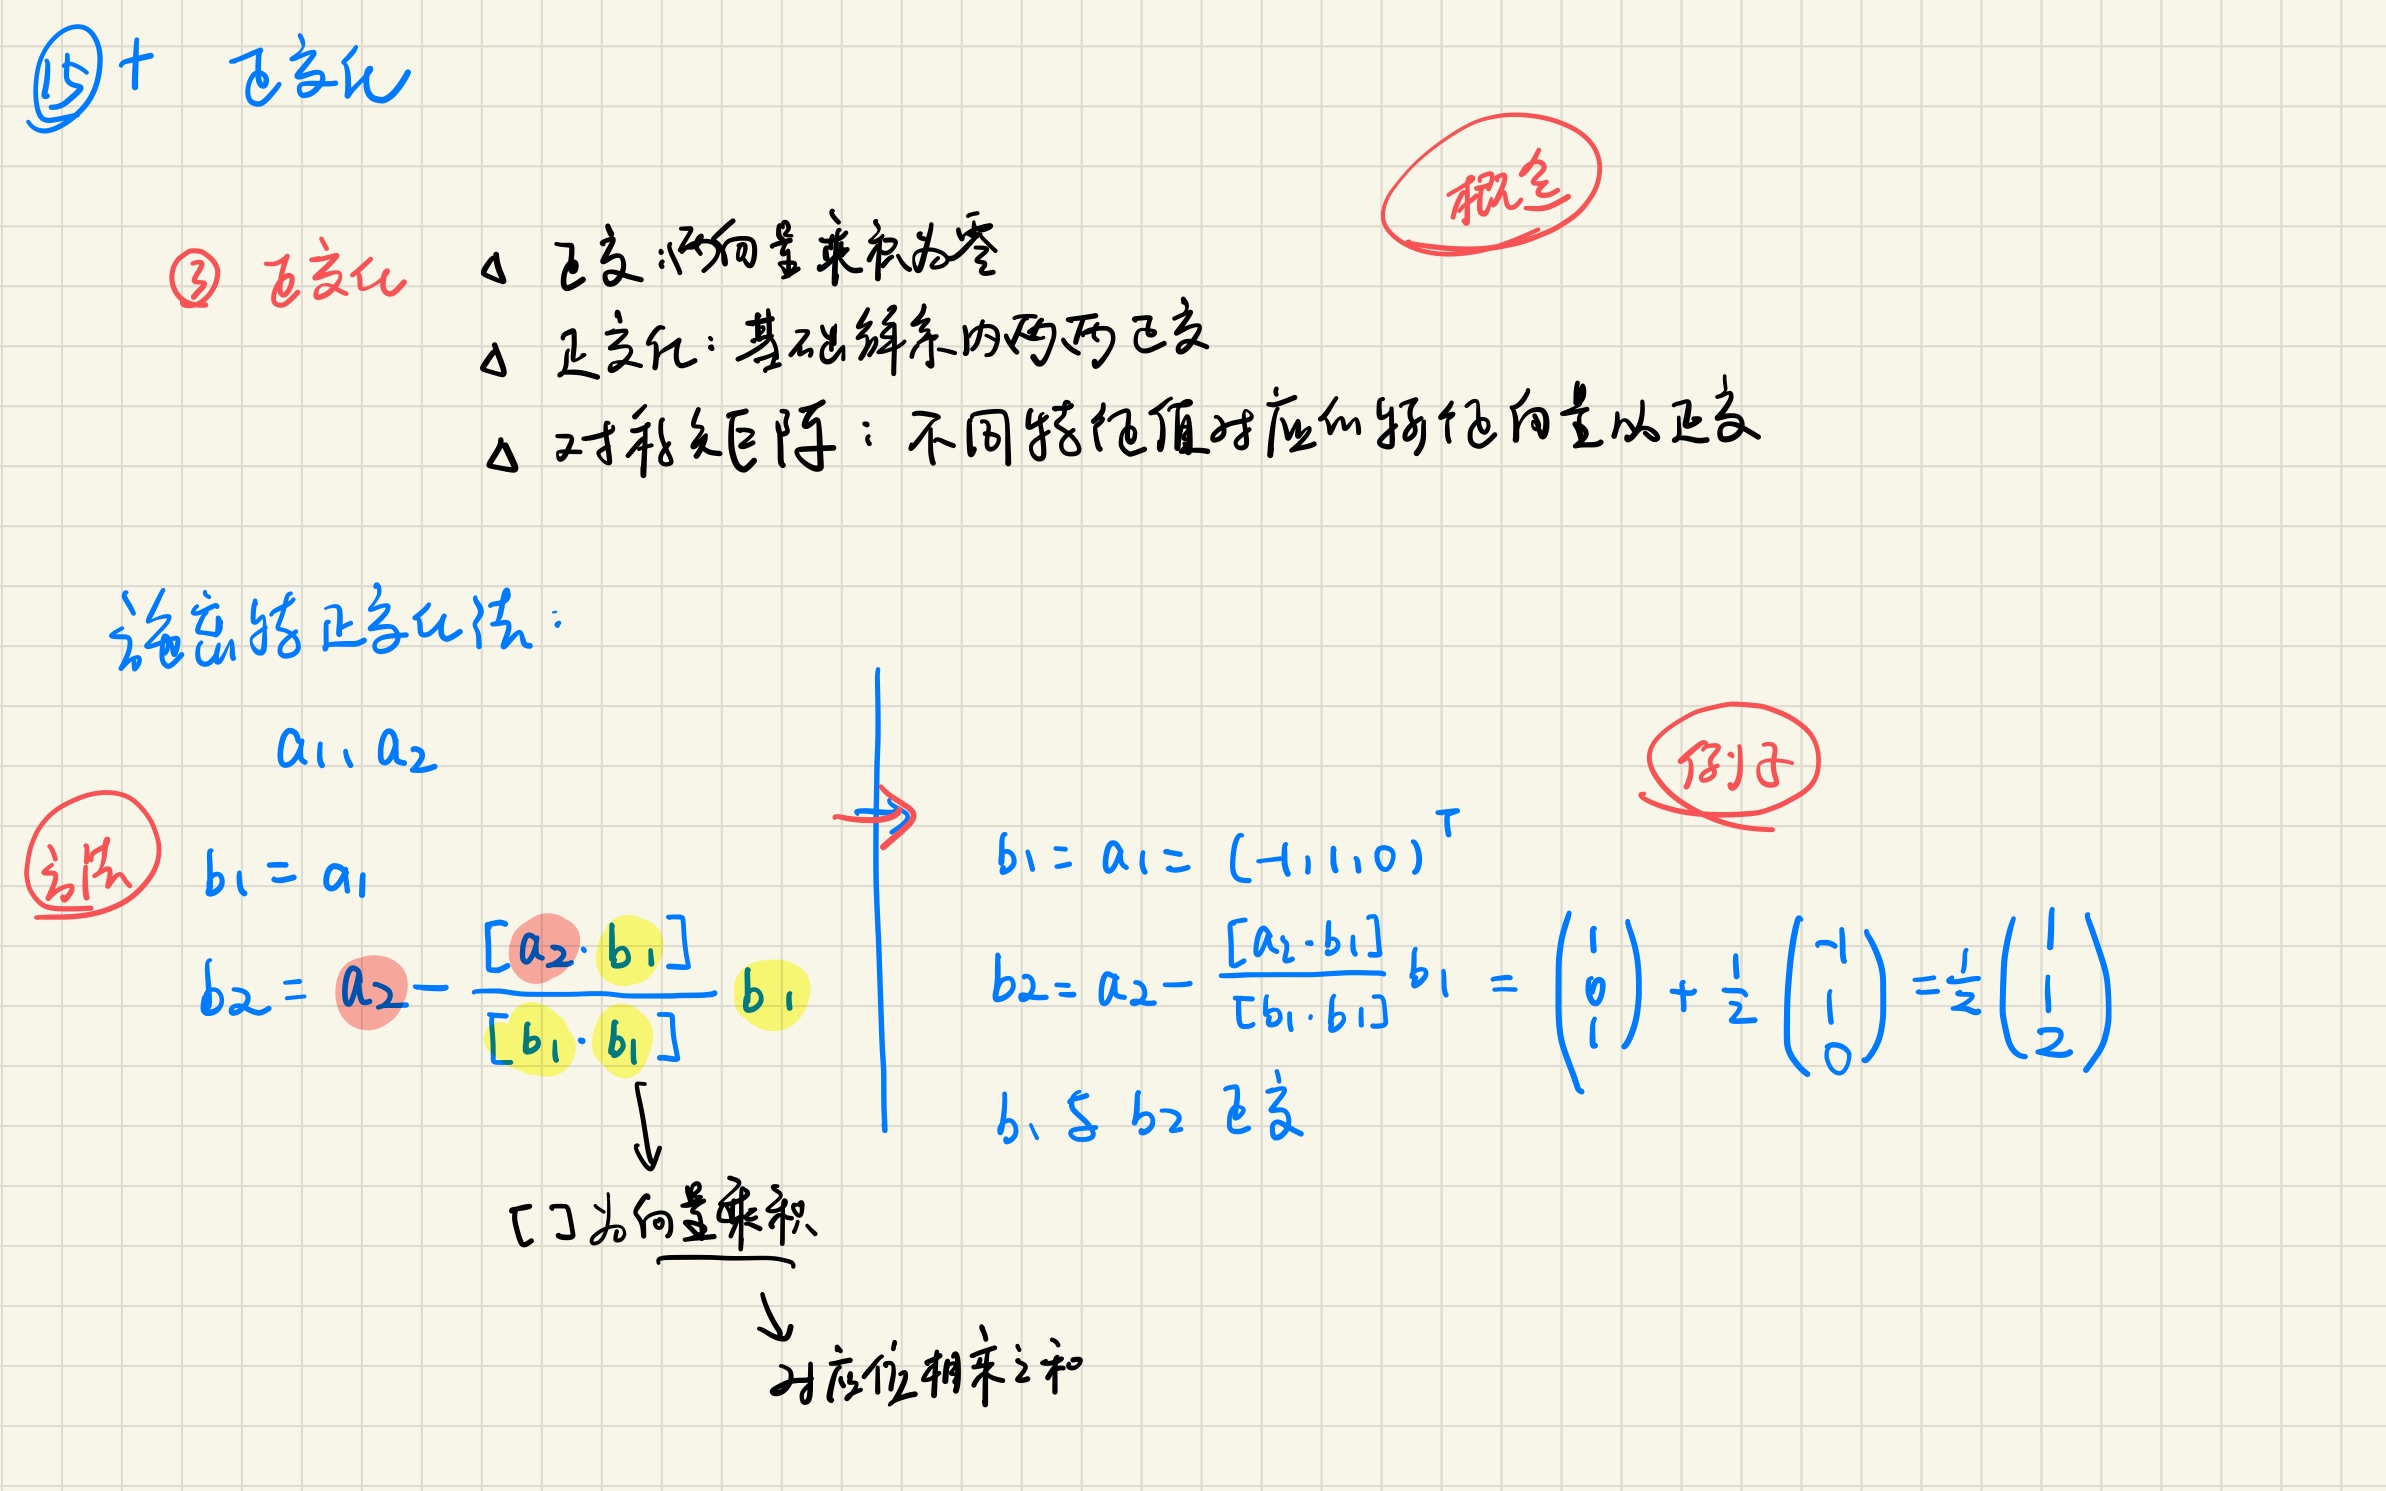 ⑮+ 正交化
概念
③ 正交化 △ 正交:两向量乘积为零
△ 正交化:基础解系内两两正交
△ 对称矩阵:不同特征值对应的特征向量必正交
施密特正交化法:
a1、a2
例子
方法
b1 = a1
b2 = a2 - [a2·b1]/[b1·b1] b1
[ ]为向量乘积
对应位相乘之和
b1 = a1 = (-1,1,0)^T
b2 = a2 - [a2·b1]/[b1·b1] b1 = (1 0 1) + 1/2 (-1 1 0) = 1/2 (1 1 2)
b1 & b2 正交